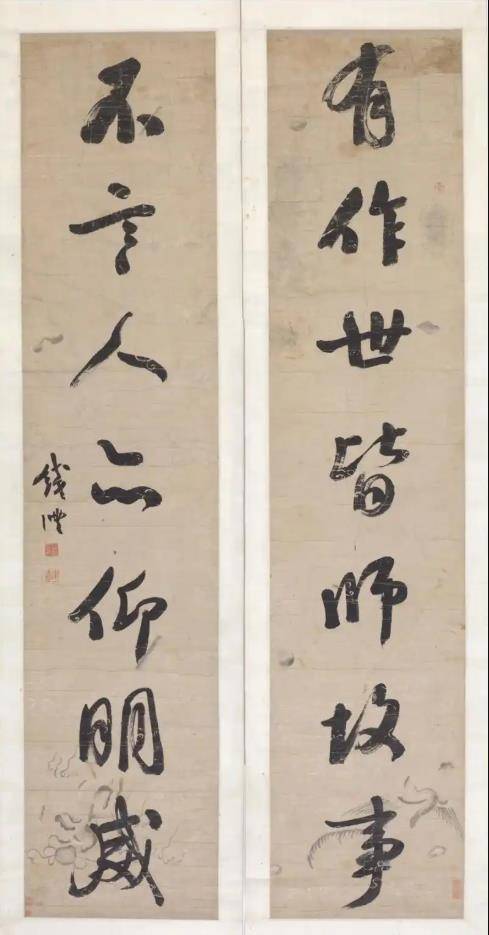 有作世皆師故事
不言人亦仰明威
錢灃